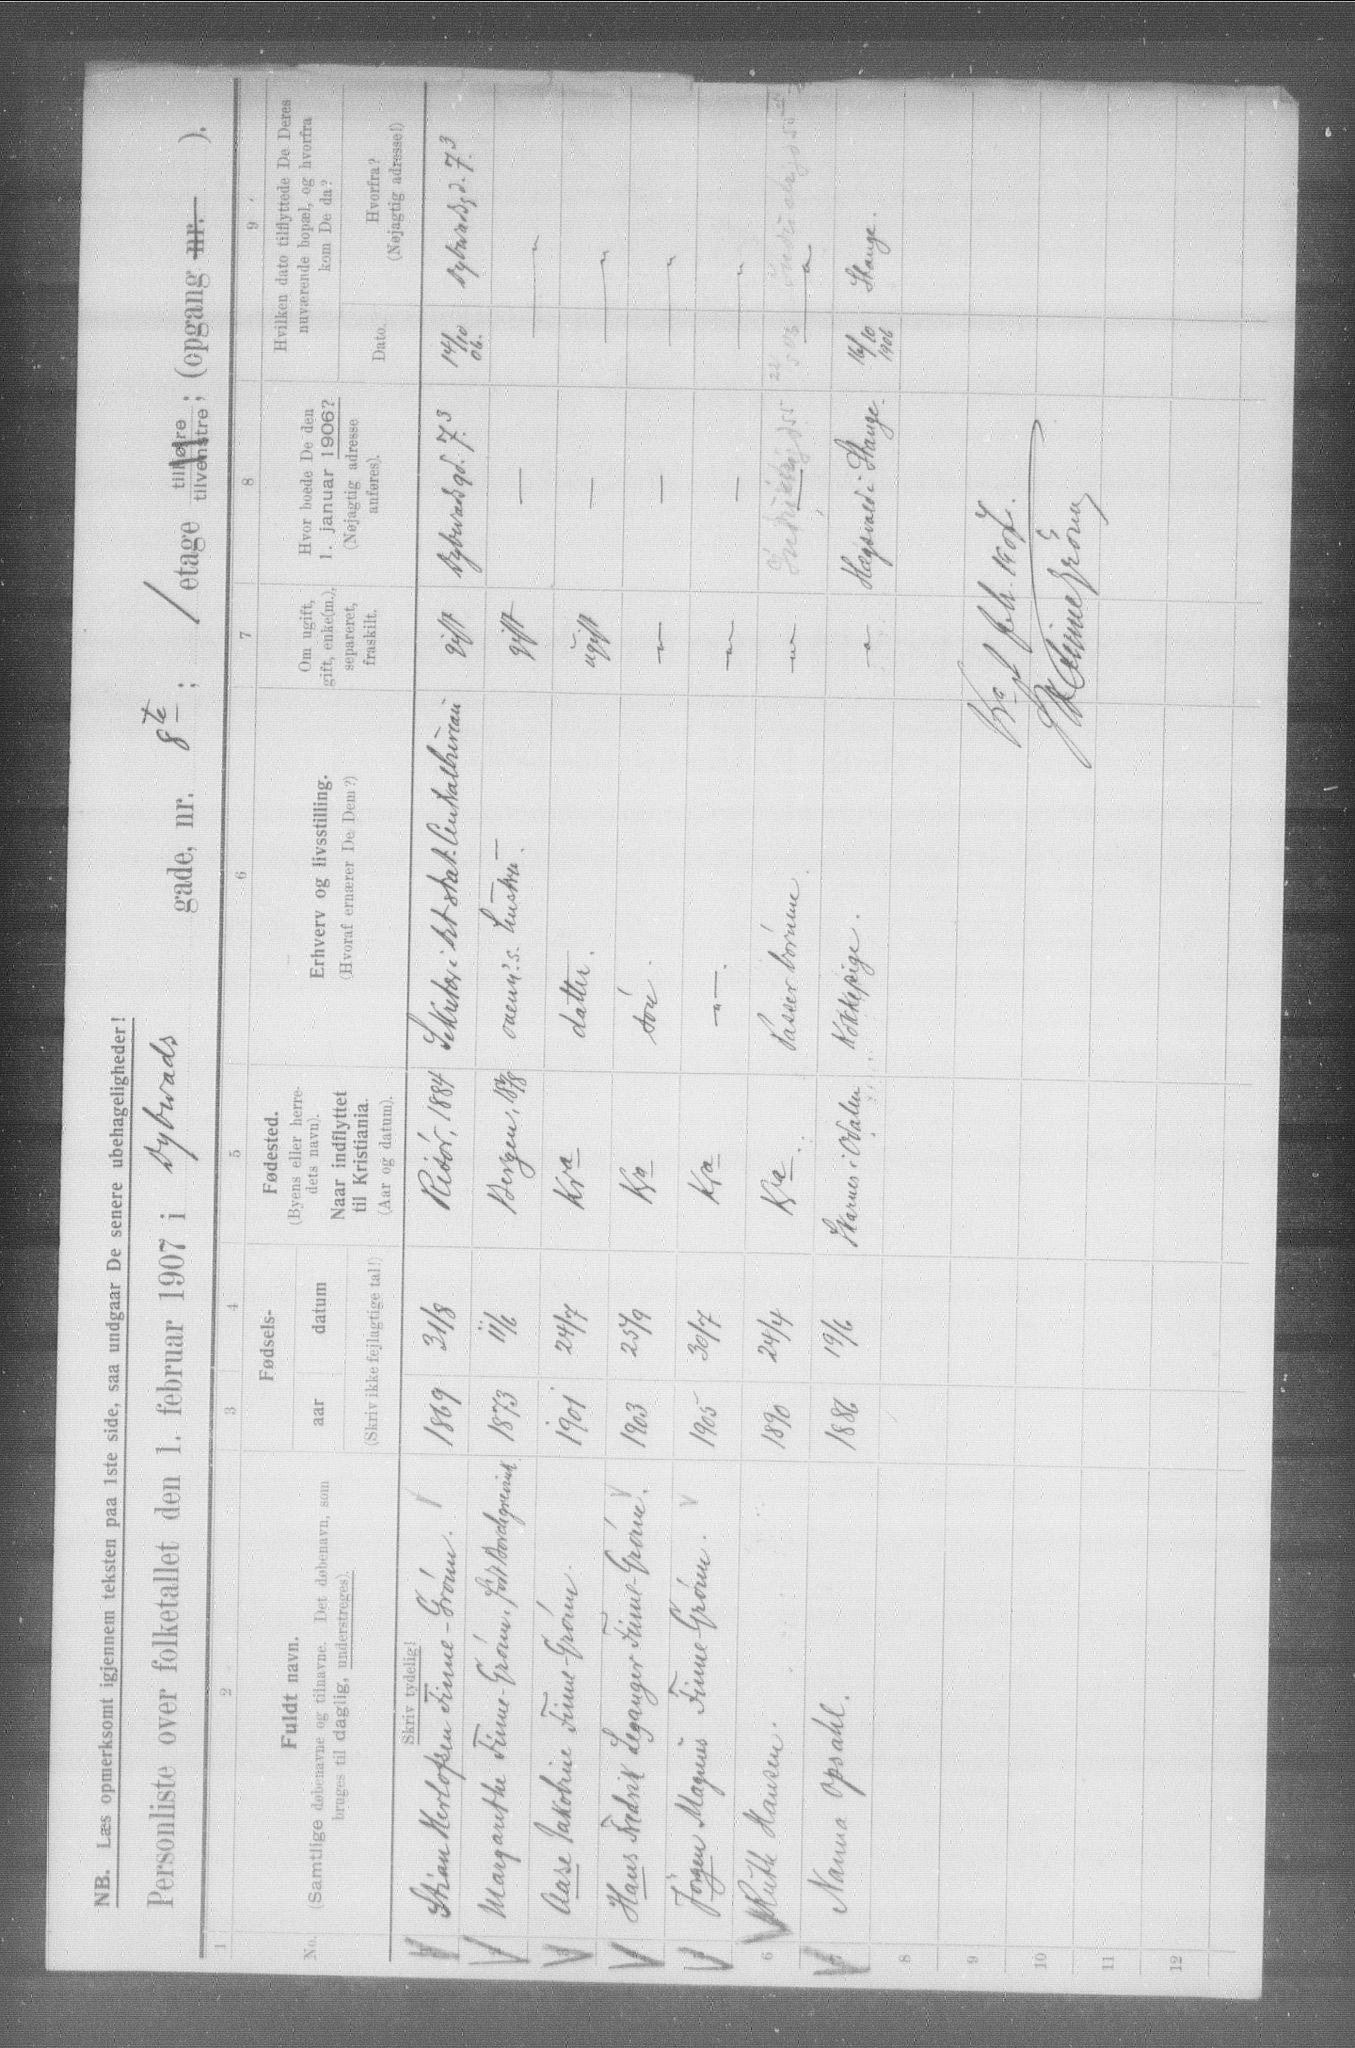 NB. Læs opmerksomt igjennem teksten paa 1ste side, saa undgaar De senere ubehageligheder!
Personliste over folketallet den 1. februar 1907 i Dybwads gade, nr. 8te; 1 etage tilhøire tilvenstre; (opgang nr. ).
1 2 3 4 5 6 7 8 9
No.
Fuldt navn.
(Samtlige døbenavne og tilnavne. Det døbenavn, som
bruges til daglig, understreges).
Skriv tydelig!
Fødsels-
aar datum
(Skriv ikke fejlagtige tal!)
Fødested.
(Byens eller herre-
dets navn).
Naar indflyttet
til Kristiania.
(Aar og datum).
Erhverv og livsstilling.
(Hvoraf ernærer De Dem?)
Om ugift,
gift, enke(m.),
separeret,
fraskilt.
Hvor boede De den
1. januar 1906?
(Nøjagtig adresse
anføres).
Hvilken dato tilflyttede De Deres
nuværende bopæl, og hvorfra
kom De da?
Dato.
Hvorfra?
(Nøjagtig adresse!)
Stian Herlofsen Finne-Grønn. 1869 31/8 Risør, 1884 Sekretær i det stat. Centralbureau gift Dybwadsgd. 7.3 14/10 06. Dybwadsg d. 7.3
Margarethe Finne-Grønn, født 1873 11/6 Bergen, 1878 ovenn.s. hustru. gift — — " —
Aase Jakobine Finne-Grønn. 1901 24/7 Kra datter. ugift — — " —
Hans Fredrik Leganger Finne-Grønn. 1903 25/9 Kra søn. — " — — — " —
Jørgen Magnus Finne-Grønn. 1905 30/7 Kra — " —. — " — — — " —
6 Ruth Hansen. 1890 24/4 Kra. Passer børnene. — " — 22/5 06 — " —
Nanna Opsahl. 1886 19/6 Skarnes i Odalen Kokkepige. — " — i Stange. 16/10 1906 Stange.
8
9
10
11
12
Kra 1 feb. 1907.
Finne Grönn